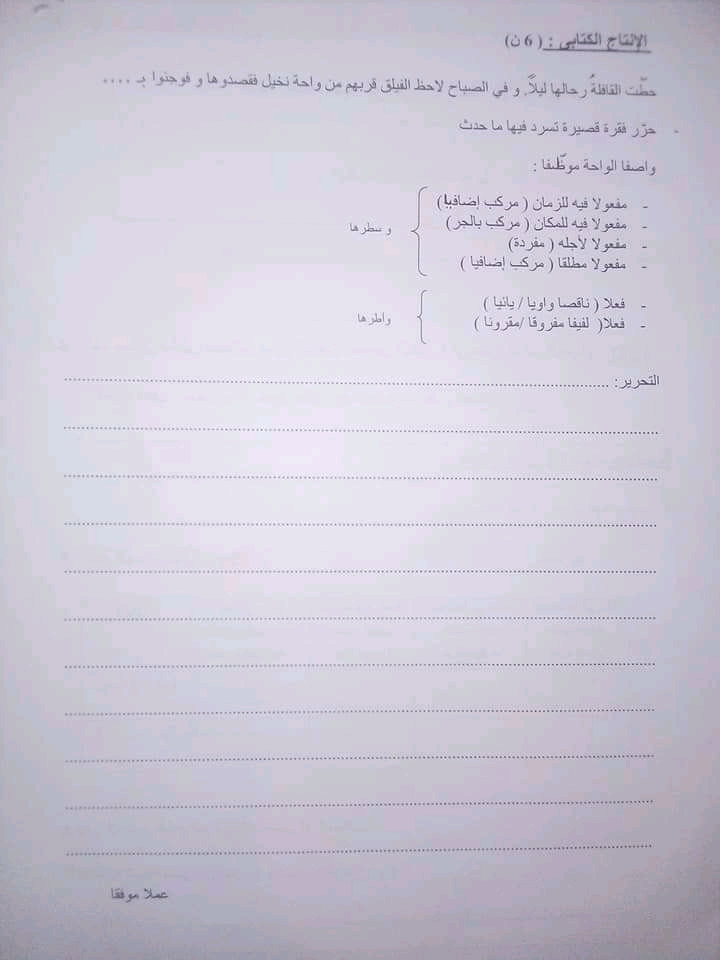 الإنتاج الكتابي : ( 6 ن)
حطّت القافلةُ رحالها ليلاً. و في الصباح لاحظ الفيلق قربهم من واحة نخيل فقصدوها و فوجئوا بـ ....
- حرّر فقرة قصيرة تسرد فيها ما حدث
واصفا الواحة موظّفا :
- مفعولا فيه للزمان ( مركب إضافيا)
- مفعولا فيه للمكان ( مركب بالجر)
و سطرها
- مفعولا لأجله ( مفردة)
- مفعولا مطلقا ( مركب إضافيا )
- فعلا ( ناقصا واويا / يائيا )
وأطرها
- فعلا( لفيفا مفروقا /مقرونا )
التحرير: ................................................
عملا موفقا